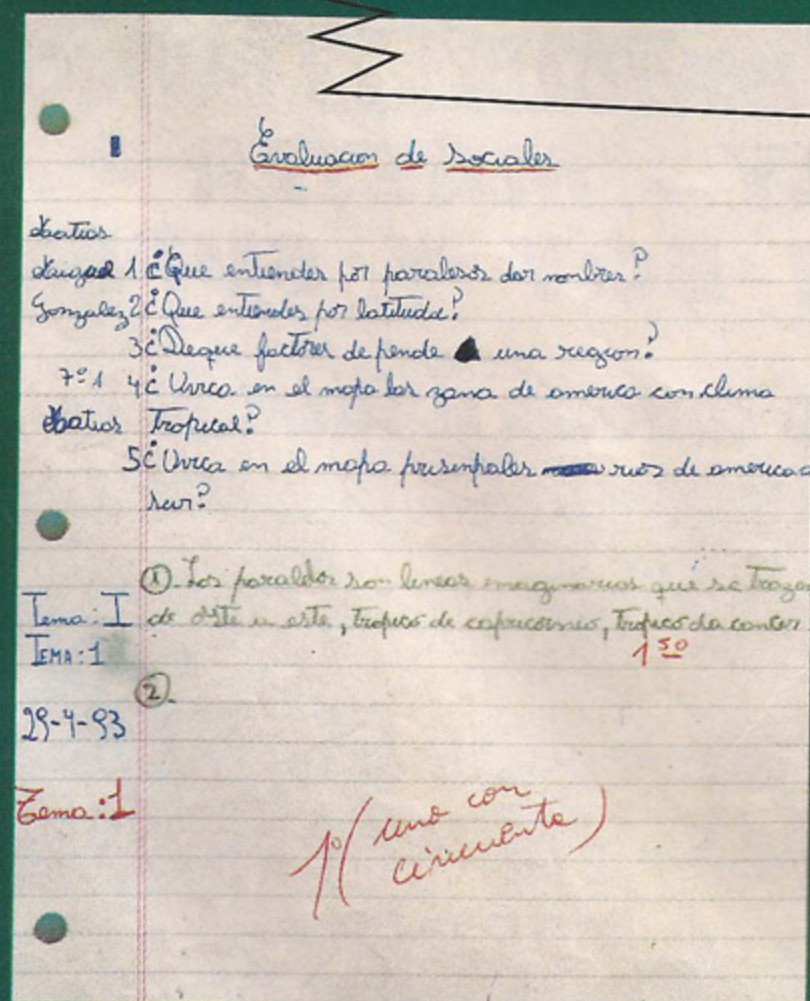 Evaluacion de Sociales
Matias
1 ¿Que entiendes por paralesos dar nonbres?
Gonzalez 2 ¿Que entiendes por latituda?
3 ¿Deque factores depende una region?
7º 1 4 ¿Uvica en el mapa las zana de america con clima
Matias Tropical?
5 ¿Uvica en el mapa prisenpales rios de america
sur?
① Los paralelos son lineas imaginarias que se trazan
Tema: I de oste a este, tropico de capricornio, Tropico da cancer
TEMA: 1
1 50
②.
29-4-93
Tema: 1
(uno con
cincuenta)